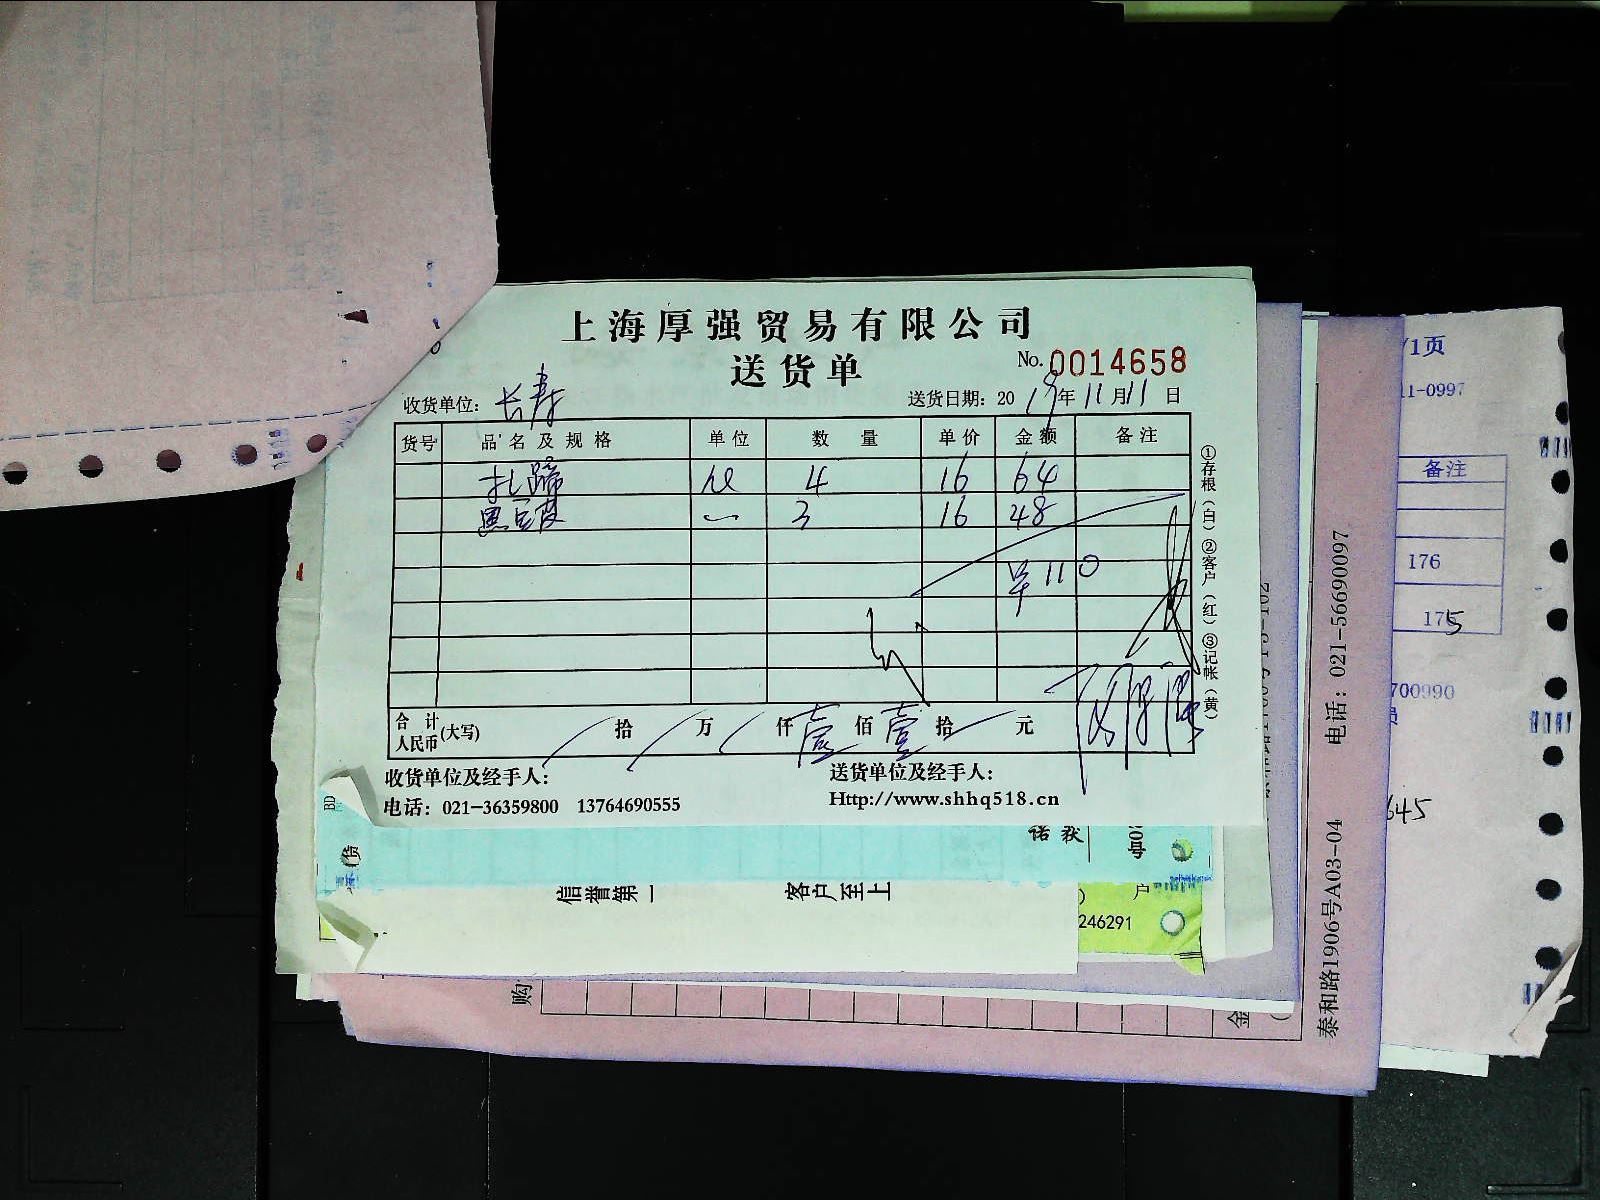 上海厚强贸易有限公司
送货单
No. 0014658
收货单位: 长寿
送货日期: 2019年11月11日
货号 品名及规格 单位 数量 单价 金额 备注
扎蹄 4 16 64
黑豆 3 16 48
110
合计人民币(大写) 拾 万 仟 壹 佰 壹 拾 元
①存根(白) ②客户(红) ③记帐(黄)
收货单位及经手人:
送货单位及经手人:
电话: 021-36359800 13764690555
Http://www.shhq518.cn
信誉第一
客户至上
户
246291
购
金
泰和路1906号A03-04
电话: 021-56690097
/1页
11-0997
备注
176
175
700990
645